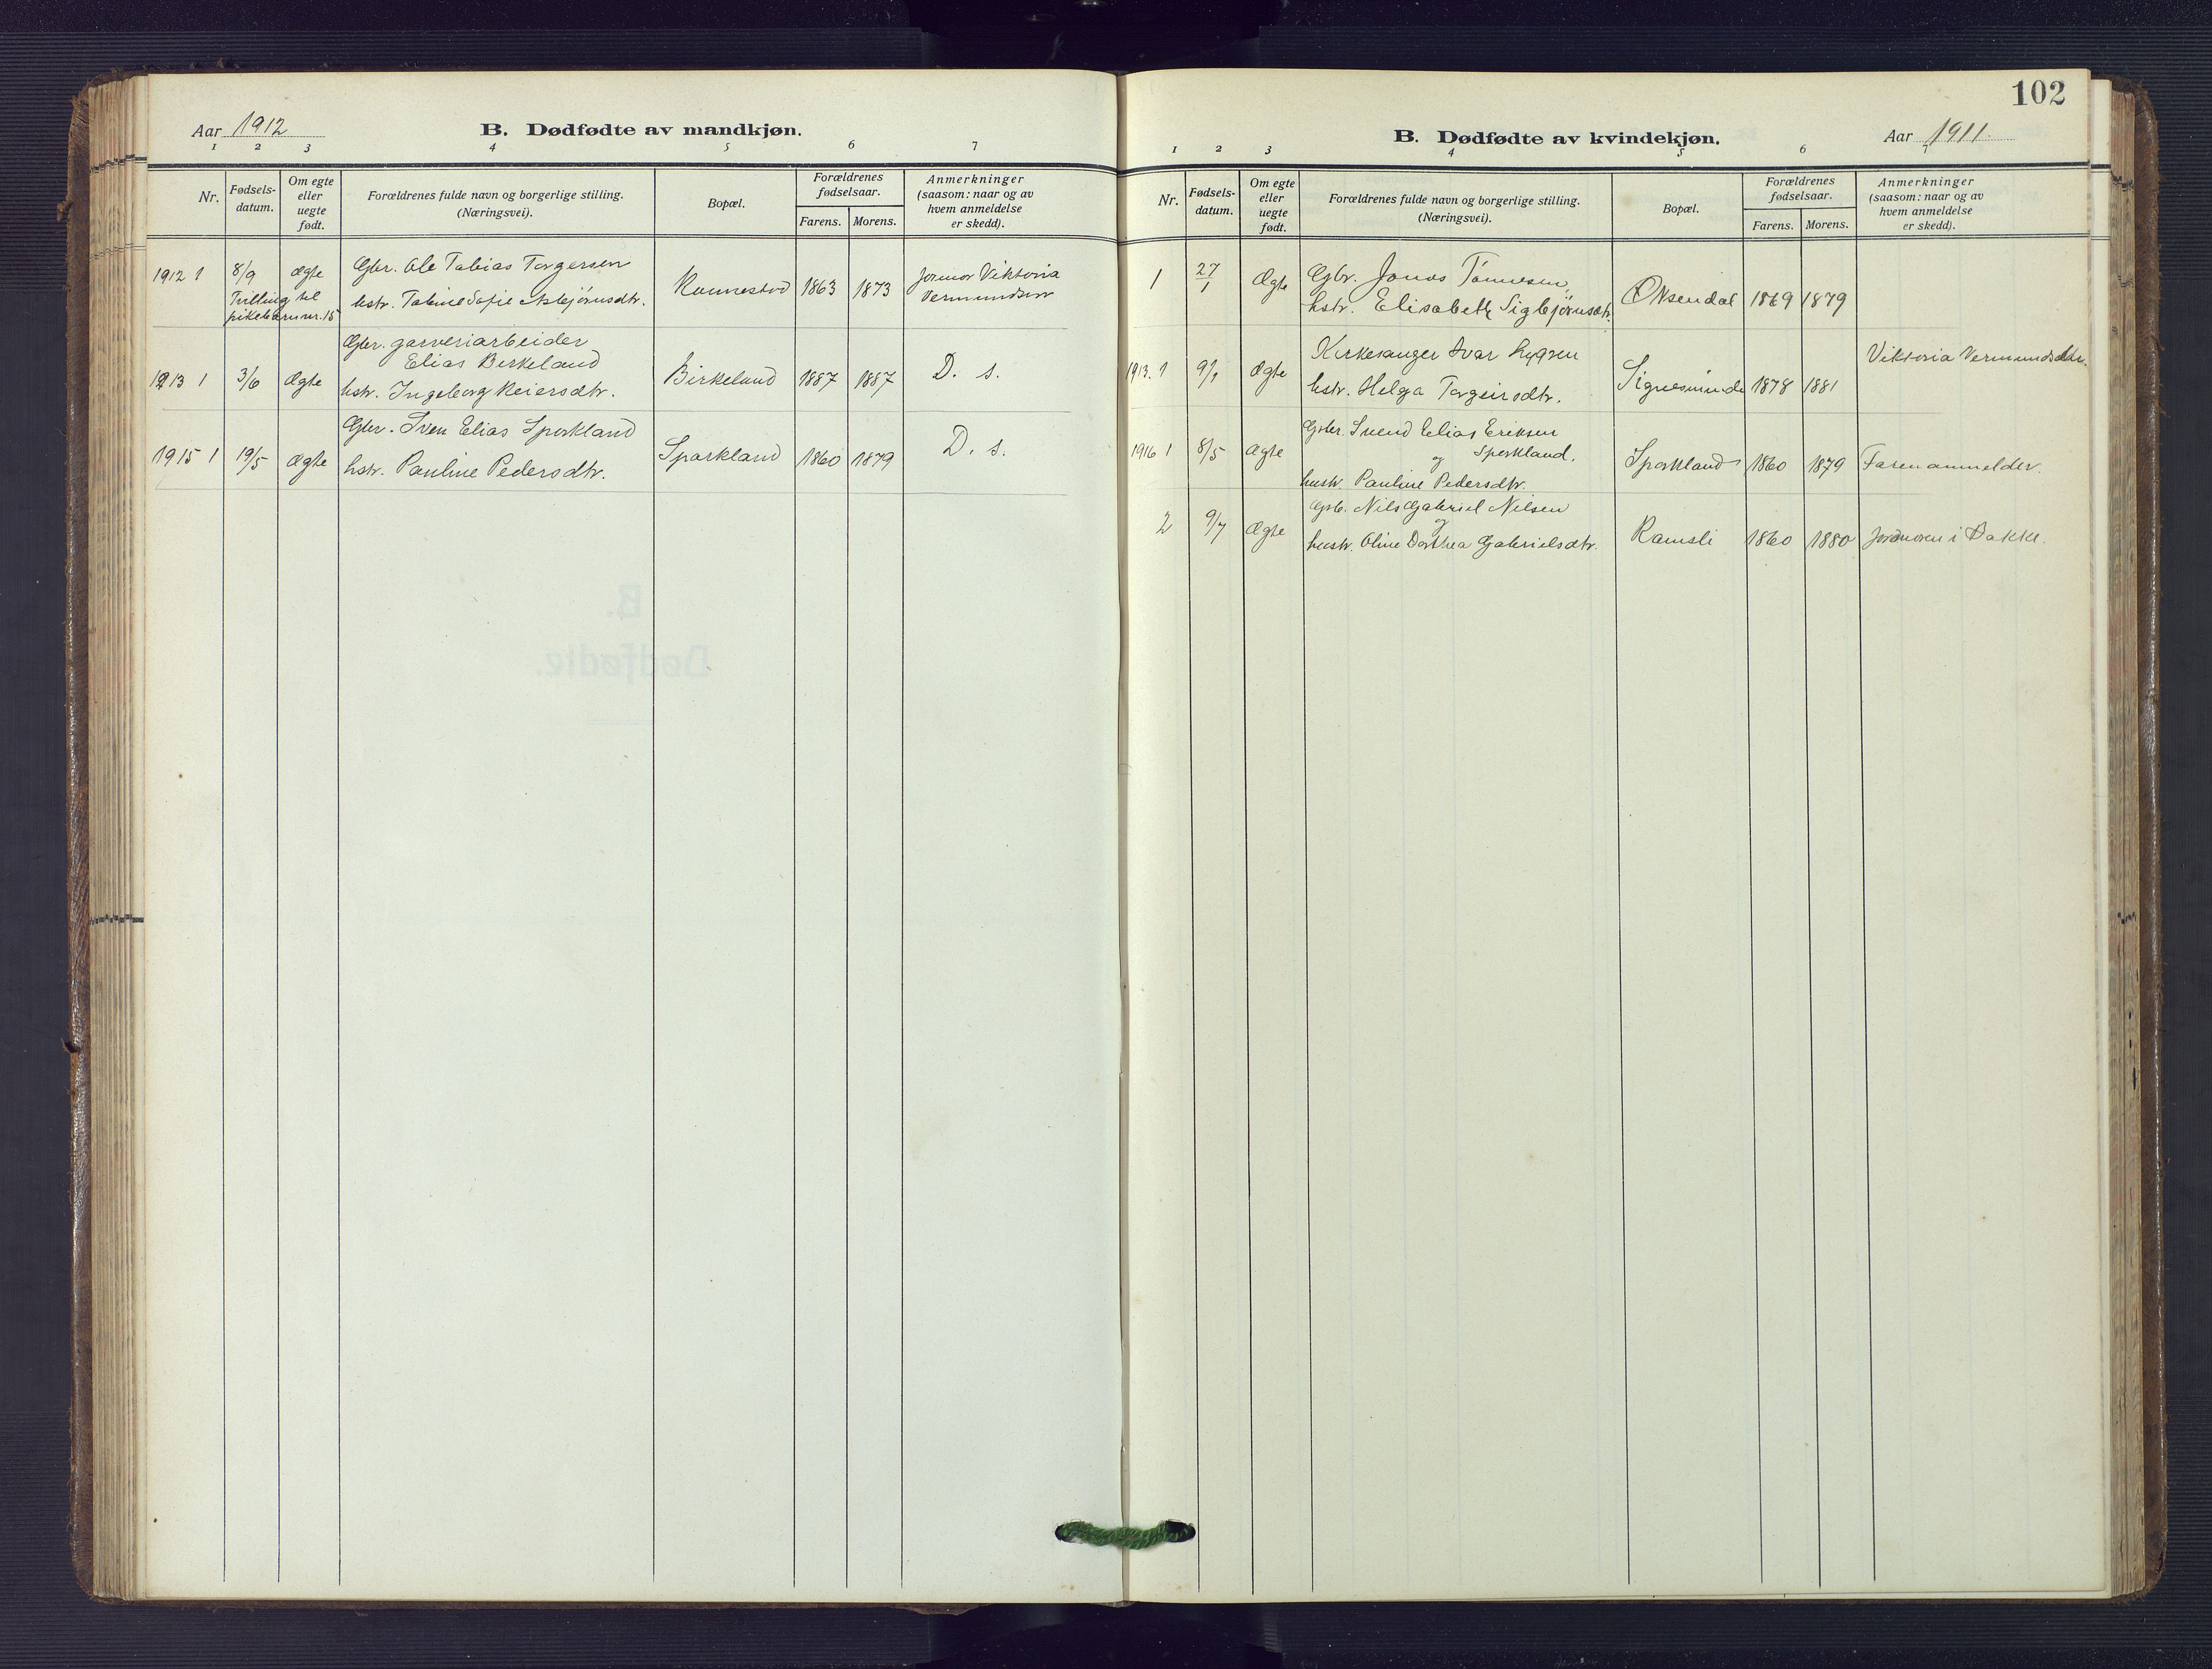 Aar 1912
B. Dødfødte av mandkjøn.
1 2 3 4 5 6 7
Nr.
Fødsels-
datum.
Om egte
eller
uegte
født.
Forældrenes fulde navn og borgerlige stilling.
(Næringsvei).
Bopæl.
Forældrenes
fødselsaar.
Farens. Morens.
Anmerkninger
(saasom: naar og av
hvem anmeldelse
er skedd).
1912 1 8/9 ægte Gbr. Ole Tobias Torgersen
Tvilling til
pikebarn nr. 15
hstr. Tobine Sofie Asbjörnsdtr.
Ronnestad 1863 1873 Jormor Viktoria
Vermundsen
1913 1 3/6 Ægte Gbr. garveriarbeider
Elias Birkeland
hstr. Ingeborg Reiersdtr.
Birkeland 1887 1887 D. s.
1915 1 19/5 Ægte Gbr. Sven Elias Sporkland
hstr. Pauline Pedersdtr.
Sparkland 1860 1879 D. s.
102
B. Dødfødte av kvindekjøn.
Aar 1911.
1 2 3 4 5 6 7
Nr.
Fødsels-
datum.
Om egte
eller
uegte
født.
Forældrenes fulde navn og borgerlige stilling.
(Næringsvei).
Bopæl.
Forældrenes
fødselsaar.
Farens. Morens.
Anmerkninger
(saasom: naar og av
hvem anmeldelse
er skedd).
1 27/1 Ægte Gbr. Jonas Tönnesen,
hstr. Elisabeth Sigbjörnsdtr.
Øksendal 1869 1879
1913. 1 9/1 Ægte Kirkesanger Ivar Lygren
hstr. Helga Torgeirsdtr.
Signesminde 1878 1881
Viktoria Vermundsdtr.
1916 1 8/5 Ægte Gbr. Svend Elias Eriksen
og Sporkland.
hustr. Pauline Pedersdtr.
Sporkland 1860 1879 Faren anmelder.
2 9/7 Ægte Grb. Nils Gabriel Nilsen
og
hustr. Oline Dorthea Gabrielsdtr.
Ramsli 1860 1880 Jordmoren i Bakke.